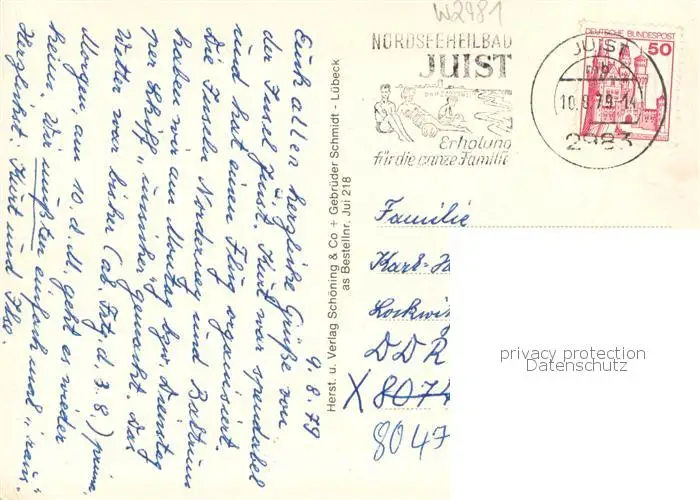 W2981
NORDSEEHEILBAD
JUIST
Erholung
für die ganze Familie
DEUTSCHE BUNDESPOST
50
JUIST
10.8.79-14
2983
9.8.79
Euch allen herzliche Grüße von
der Insel Juist. Kurt war spendabel
und hat einen Flug organisiert.
Die Inseln Norderney und Baltrum
haben wir am Montag bzw. Dienstag
per Schiff „unsicher" gemacht. Das
Wetter war bisher (ab Frtg. d. 3.8.) prima.
Morgen am 10. d. M. geht es wieder
heim. Wir mußten einfach mal „raus".
Herzlichst: Kurt und Ilse.
Herst. u. Verlag Schöning & Co + Gebrüder Schmidt - Lübeck
as Bestellnr. Jui 218
Familie
Karl-H
Lockwi
DDR
X 8074
8047
privacy protection
Datenschutz